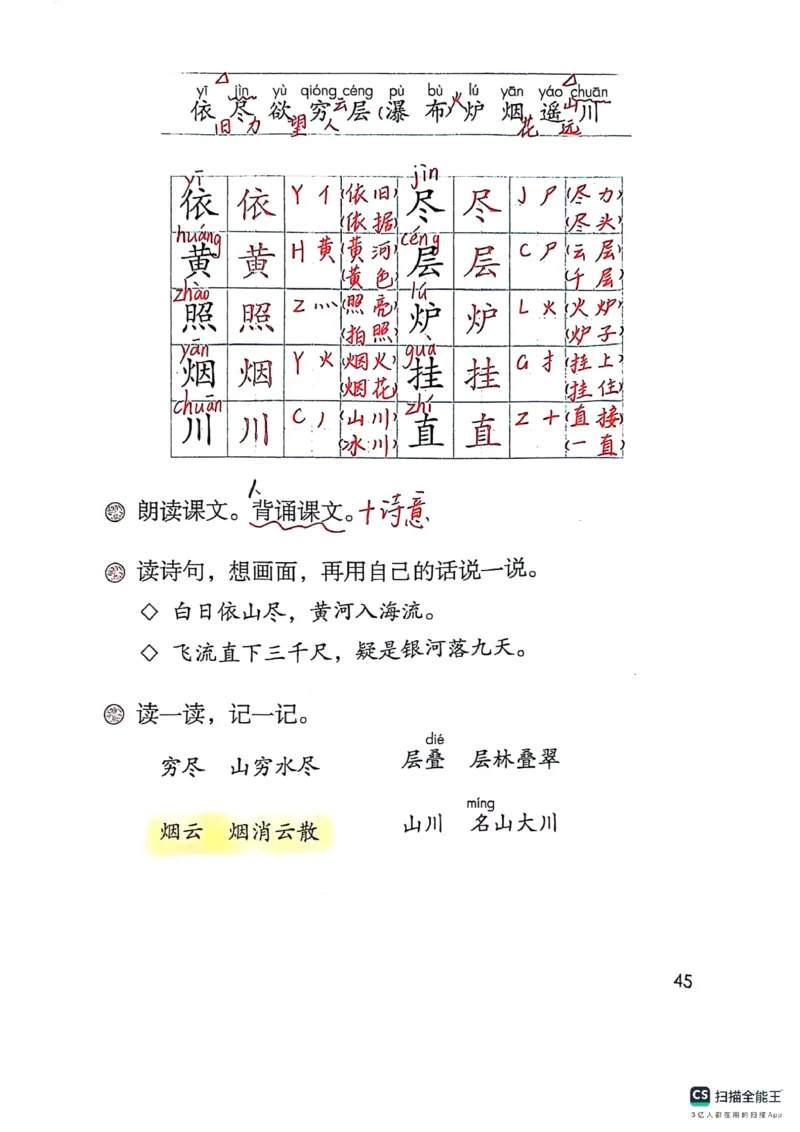 yī jìn yù qióng céng pù bù lú yān yáo chuān
依 尽 欲 穷云层(瀑 布)火炉 烟 遥山川
旧 力 望 人 花 远
yī jìn
依 依 Y 亻 (依旧) 尽 尽 J 尸 (尽力)
(依据) (尽头)
huáng céng
黄 黄 H 黄 (黄河) 层 层 C 尸 (云层)
(黄色) (千层)
zhào lú
照 照 Z 灬 (照亮) 炉 炉 L 火 (火炉)
(拍照) (炉子)
yān guà
烟 烟 Y 火 (烟火) 挂 挂 G 扌 (挂上)
(烟花) (挂住)
chuān zhí
川 川 C 丿 (山川) 直 直 Z 十 (直接)
(冰川) (一直)
朗读课文。背诵课文。+诗意
读诗句，想画面，再用自己的话说一说。
◇ 白日依山尽，黄河入海流。
◇ 飞流直下三千尺，疑是银河落九天。
读一读，记一记。
dié
穷尽 山穷水尽 层叠 层林叠翠
míng
烟云 烟消云散 山川 名山大川
45
CS 扫描全能王
3亿人都在用的扫描App